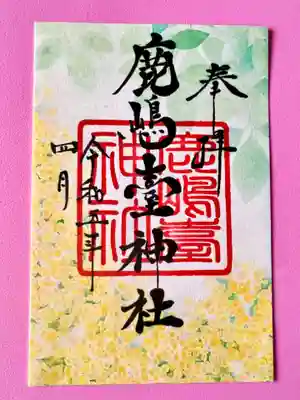 奉拝
鹿嶋臺神社
鹿嶋臺神社
令和五年
四月